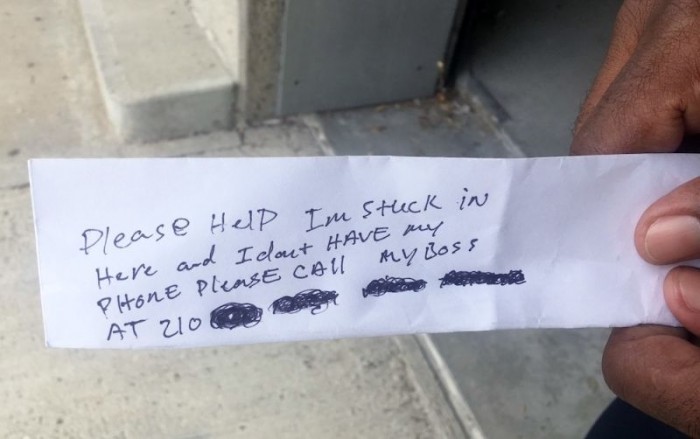 Please Help Im stuck in
Here and I dont HAVE my
PHONE Please CAll MY BOSS
AT 210